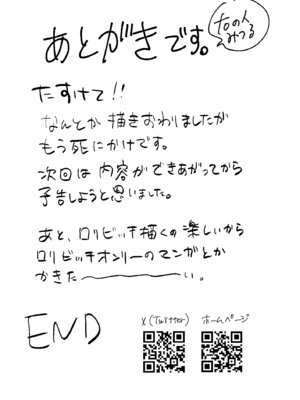 あとがきです。
foの人
みつる
たすけて!!
なんとか描きおわりましたが
もう死にかけです。
次回は内容ができあがってから
予告しようと思いました。
あと、ロリビッチ描くの楽しいから
ロリビッチオンリーのマンガとか
かきた〜い。
END
X(Twitter) ホームページ